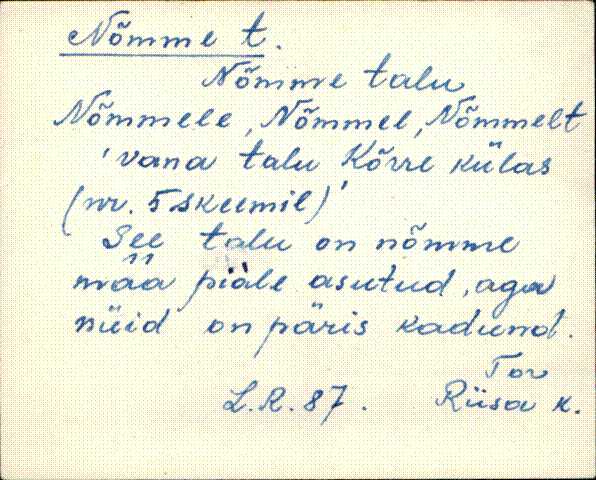 Nõmme t.
Nõmme talu
Nõmmele, Nõmmel, Nõmmelt
'vana talu Kõrre külas
(nr. 5 skeemil)'
See talu on nõmme
mää piäle asutud, aga
nüid on päris kadund.
Tor
L.R. 87. Riisa k.